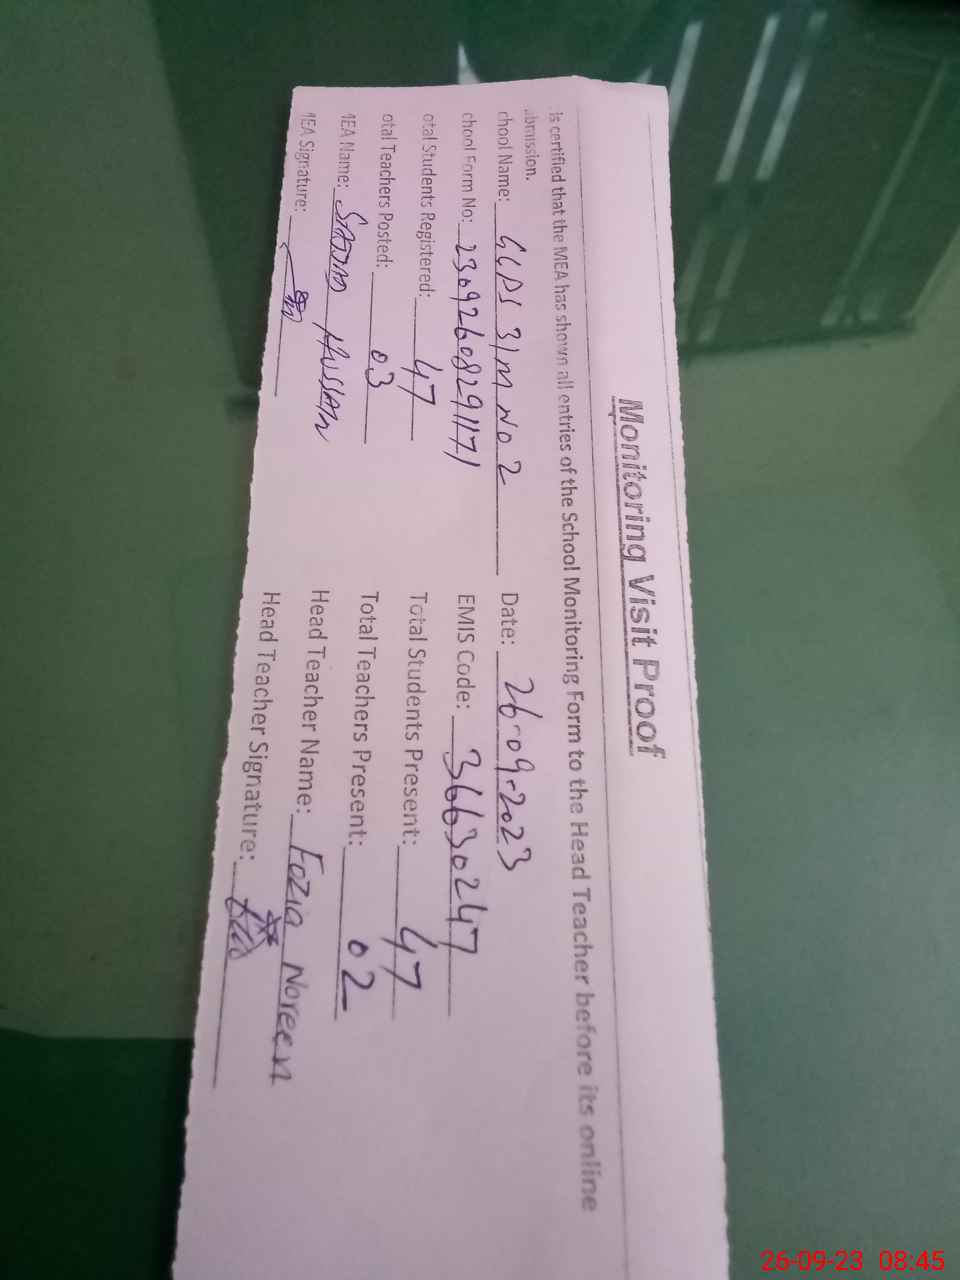 Monitoring Visit Proof
is certified that the MEA has shown all entries of the School Monitoring Form to the Head Teacher before its online
ubmission.
chool Name: GGPS 31M NO 2 Date: 26-09-2023
chool Form No: 230926082911171 EMIS Code: 36630247
otal Students Registered: 47 Total Students Present: 47
otal Teachers Posted: 03 Total Teachers Present: 02
MEA Name: Hussain Head Teacher Name: Fozia Noreen
MEA Signature: Head Teacher Signature:
26-09-23 08:45